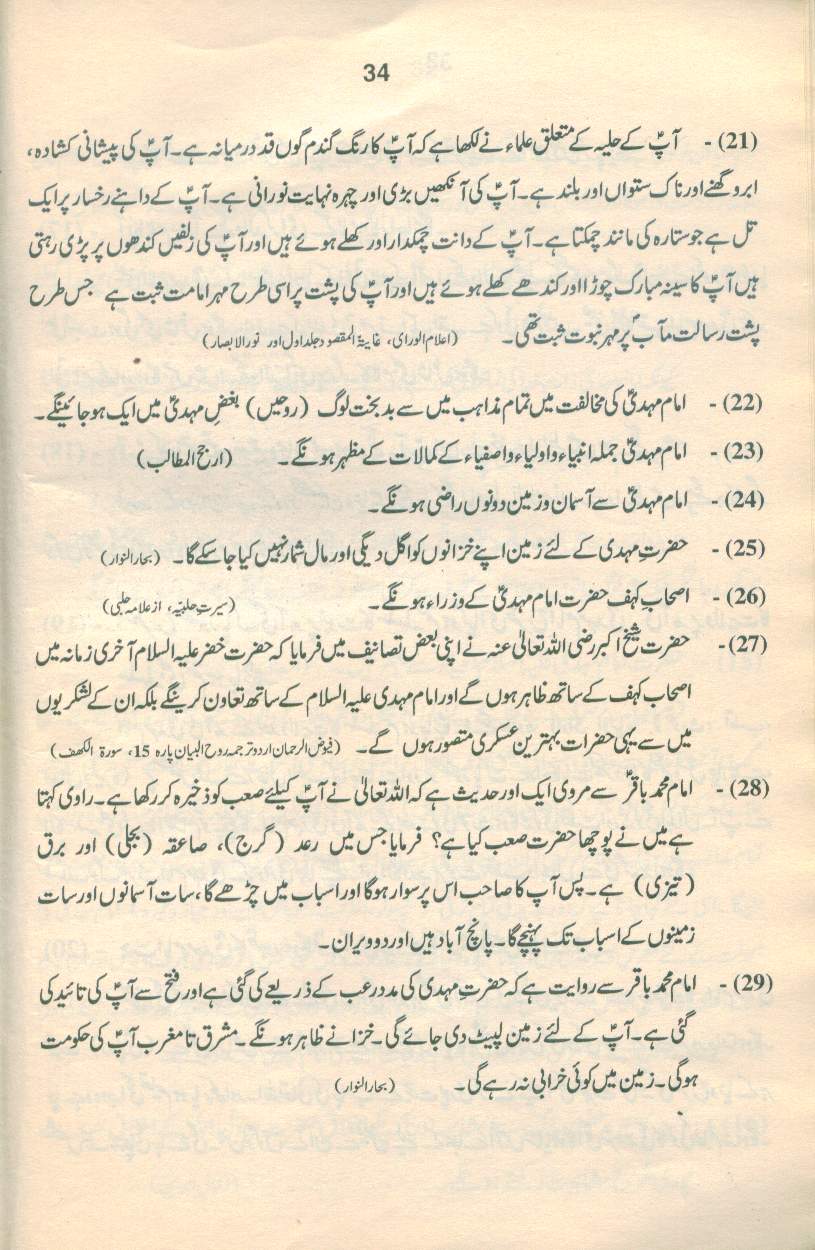 34
(21) - آپؑ کے حلیہ کے متعلق علماء نے لکھا ہے کہ آپؑ کا رنگ گندم گوں قد درمیانہ ہے۔ آپؑ کی پیشانی کشادہ،
ابرو گھنے اور ناک ستواں اور بلند ہے۔ آپؑ کی آنکھیں بڑی اور چہرہ نہایت نورانی ہے۔ آپؑ کے داہنے رخسار پر ایک
تل ہے جو ستارہ کی مانند چمکتا ہے۔ آپؑ کے دانت چمکدار اور کھلے ہوئے ہیں اور آپؑ کی زلفیں کندھوں پر پڑی رہتی
ہیں آپؑ کا سینہ مبارک چوڑا اور کندھے کھلے ہوئے ہیں اور آپؑ کی پشت پر اسی طرح مہر امامت ثبت ہے جس طرح
پشت رسالت مآبؐ پر مہر نبوت ثبت تھی۔ (اعلام الورای، غایۃ المقصود جلد اول اور نور الابصار)
(22) - امام مہدیؑ کی مخالفت میں تمام مذاہب میں سے بد بخت لوگ (روحیں) بغضِ مہدیؑ میں ایک ہو جائینگے۔
(23) - امام مہدیؑ جملہ انبیاء و اولیاء و اصفیاء کے کمالات کے مظہر ہونگے۔ (ارجح المطالب)
(24) - امام مہدیؑ سے آسمان و زمین دونوں راضی ہونگے۔
(25) - حضرتِ مہدی کے لئے زمین اپنے خزانوں کو اگل دیگی اور مال شمار نہیں کیا جا سکے گا۔ (بحار النوار)
(26) - اصحاب کہف حضرت امام مہدیؑ کے وزراء ہونگے۔ (سیرت حلبیّہ، از علامہ حلبی)
(27) - حضرت شیخ اکبر رضی اللہ تعالیٰ عنہ نے اپنی بعض تصانیف میں فرمایا کہ حضرت خضر علیہ السلام آخری زمانہ میں
اصحاب کہف کے ساتھ ظاہر ہوں گے اور امام مہدی علیہ السلام کے ساتھ تعاون کرینگے بلکہ ان کے لشکریوں
میں سے یہی حضرات بہترین عسکری متصور ہوں گے۔ (فیوض الرحمان اردو ترجمہ روح البیان پارہ 15، سورۃ الکھف)
(28) - امام محمد باقرؑ سے مروی ایک اور حدیث ہے کہ اللہ تعالیٰ نے آپؑ کیلئے صعب کو ذخیرہ کر رکھا ہے۔ راوی کہتا
ہے میں نے پوچھا حضرت صعب کیا ہے؟ فرمایا جس میں رعد (گرج)، صاعقہ (بجلی) اور برق
(تیزی) ہے۔ پس آپ کا صاحب اس پر سوار ہوگا اور اسباب میں چڑھے گا، سات آسمانوں اور سات
زمینوں کے اسباب تک پہنچے گا۔ پانچ آباد ہیں اور دو ویران۔
(29) - امام محمد باقر سے روایت ہے کہ حضرتِ مہدی کی مدد رعب کے ذریعے کی گئی ہے اور فتح سے آپؑ کی تائید کی
گئی ہے۔ آپؑ کے لئے زمین لپیٹ دی جائے گی۔ خزانے ظاہر ہونگے۔ مشرق تا مغرب آپؑ کی حکومت
ہوگی۔ زمین میں کوئی خرابی نہ رہے گی۔ (بحار النوار)